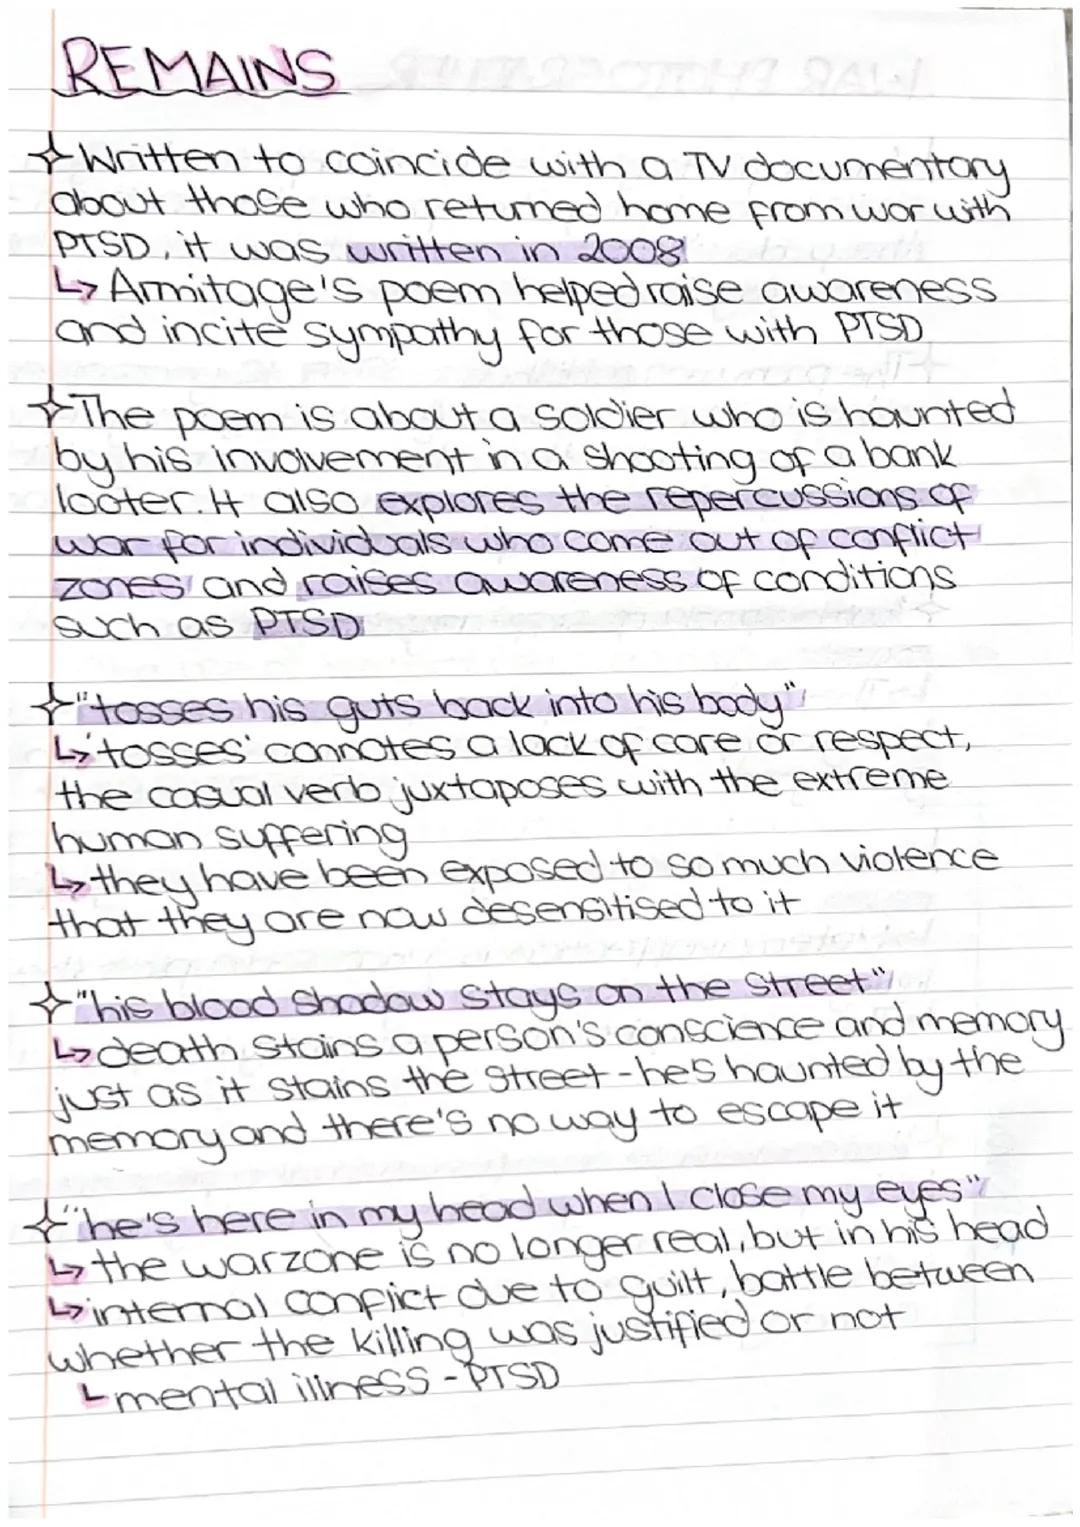 REMAINS
Written to coincide with a TV documentary
about those who returned home from war with
PTSD, it was written in 2008
↳ Armitage's poem helped raise awareness
and incite sympathy for those with PTSD
The poem is about a soldier who is haunted
by his involvement in a shooting of a bank
looter. It also explores the repercussions of
war for individuals who come out of conflict
zones and raises awareness of conditions
such as PTSD
"tosses his guts back into his body"
↳ 'tosses' connotes a lack of care or respect,
the casual verb juxtaposes with the extreme
human suffering
↳ they have been exposed to so much violence
that they are now desensitised to it
"his blood shadow stays on the street"
↳ death stains a person's conscience and memory
just as it stains the street - hes haunted by the
memory and there's no way to escape it
"he's here in my head when I close my eyes"
↳ the warzone is no longer real, but in his head
↳ internal conflict due to guilt, battle between
whether the killing was justified or not
↳ mental illness - PTSD